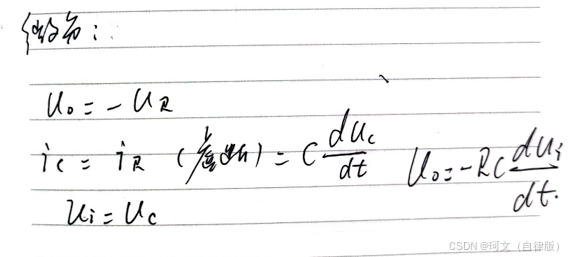 微分：
u₀ = - u_R
i_C = i_R (虚断) = C du_C/dt
u_i = u_C
u₀ = -RC du_i/dt.
CSDN @珂文（自律版）